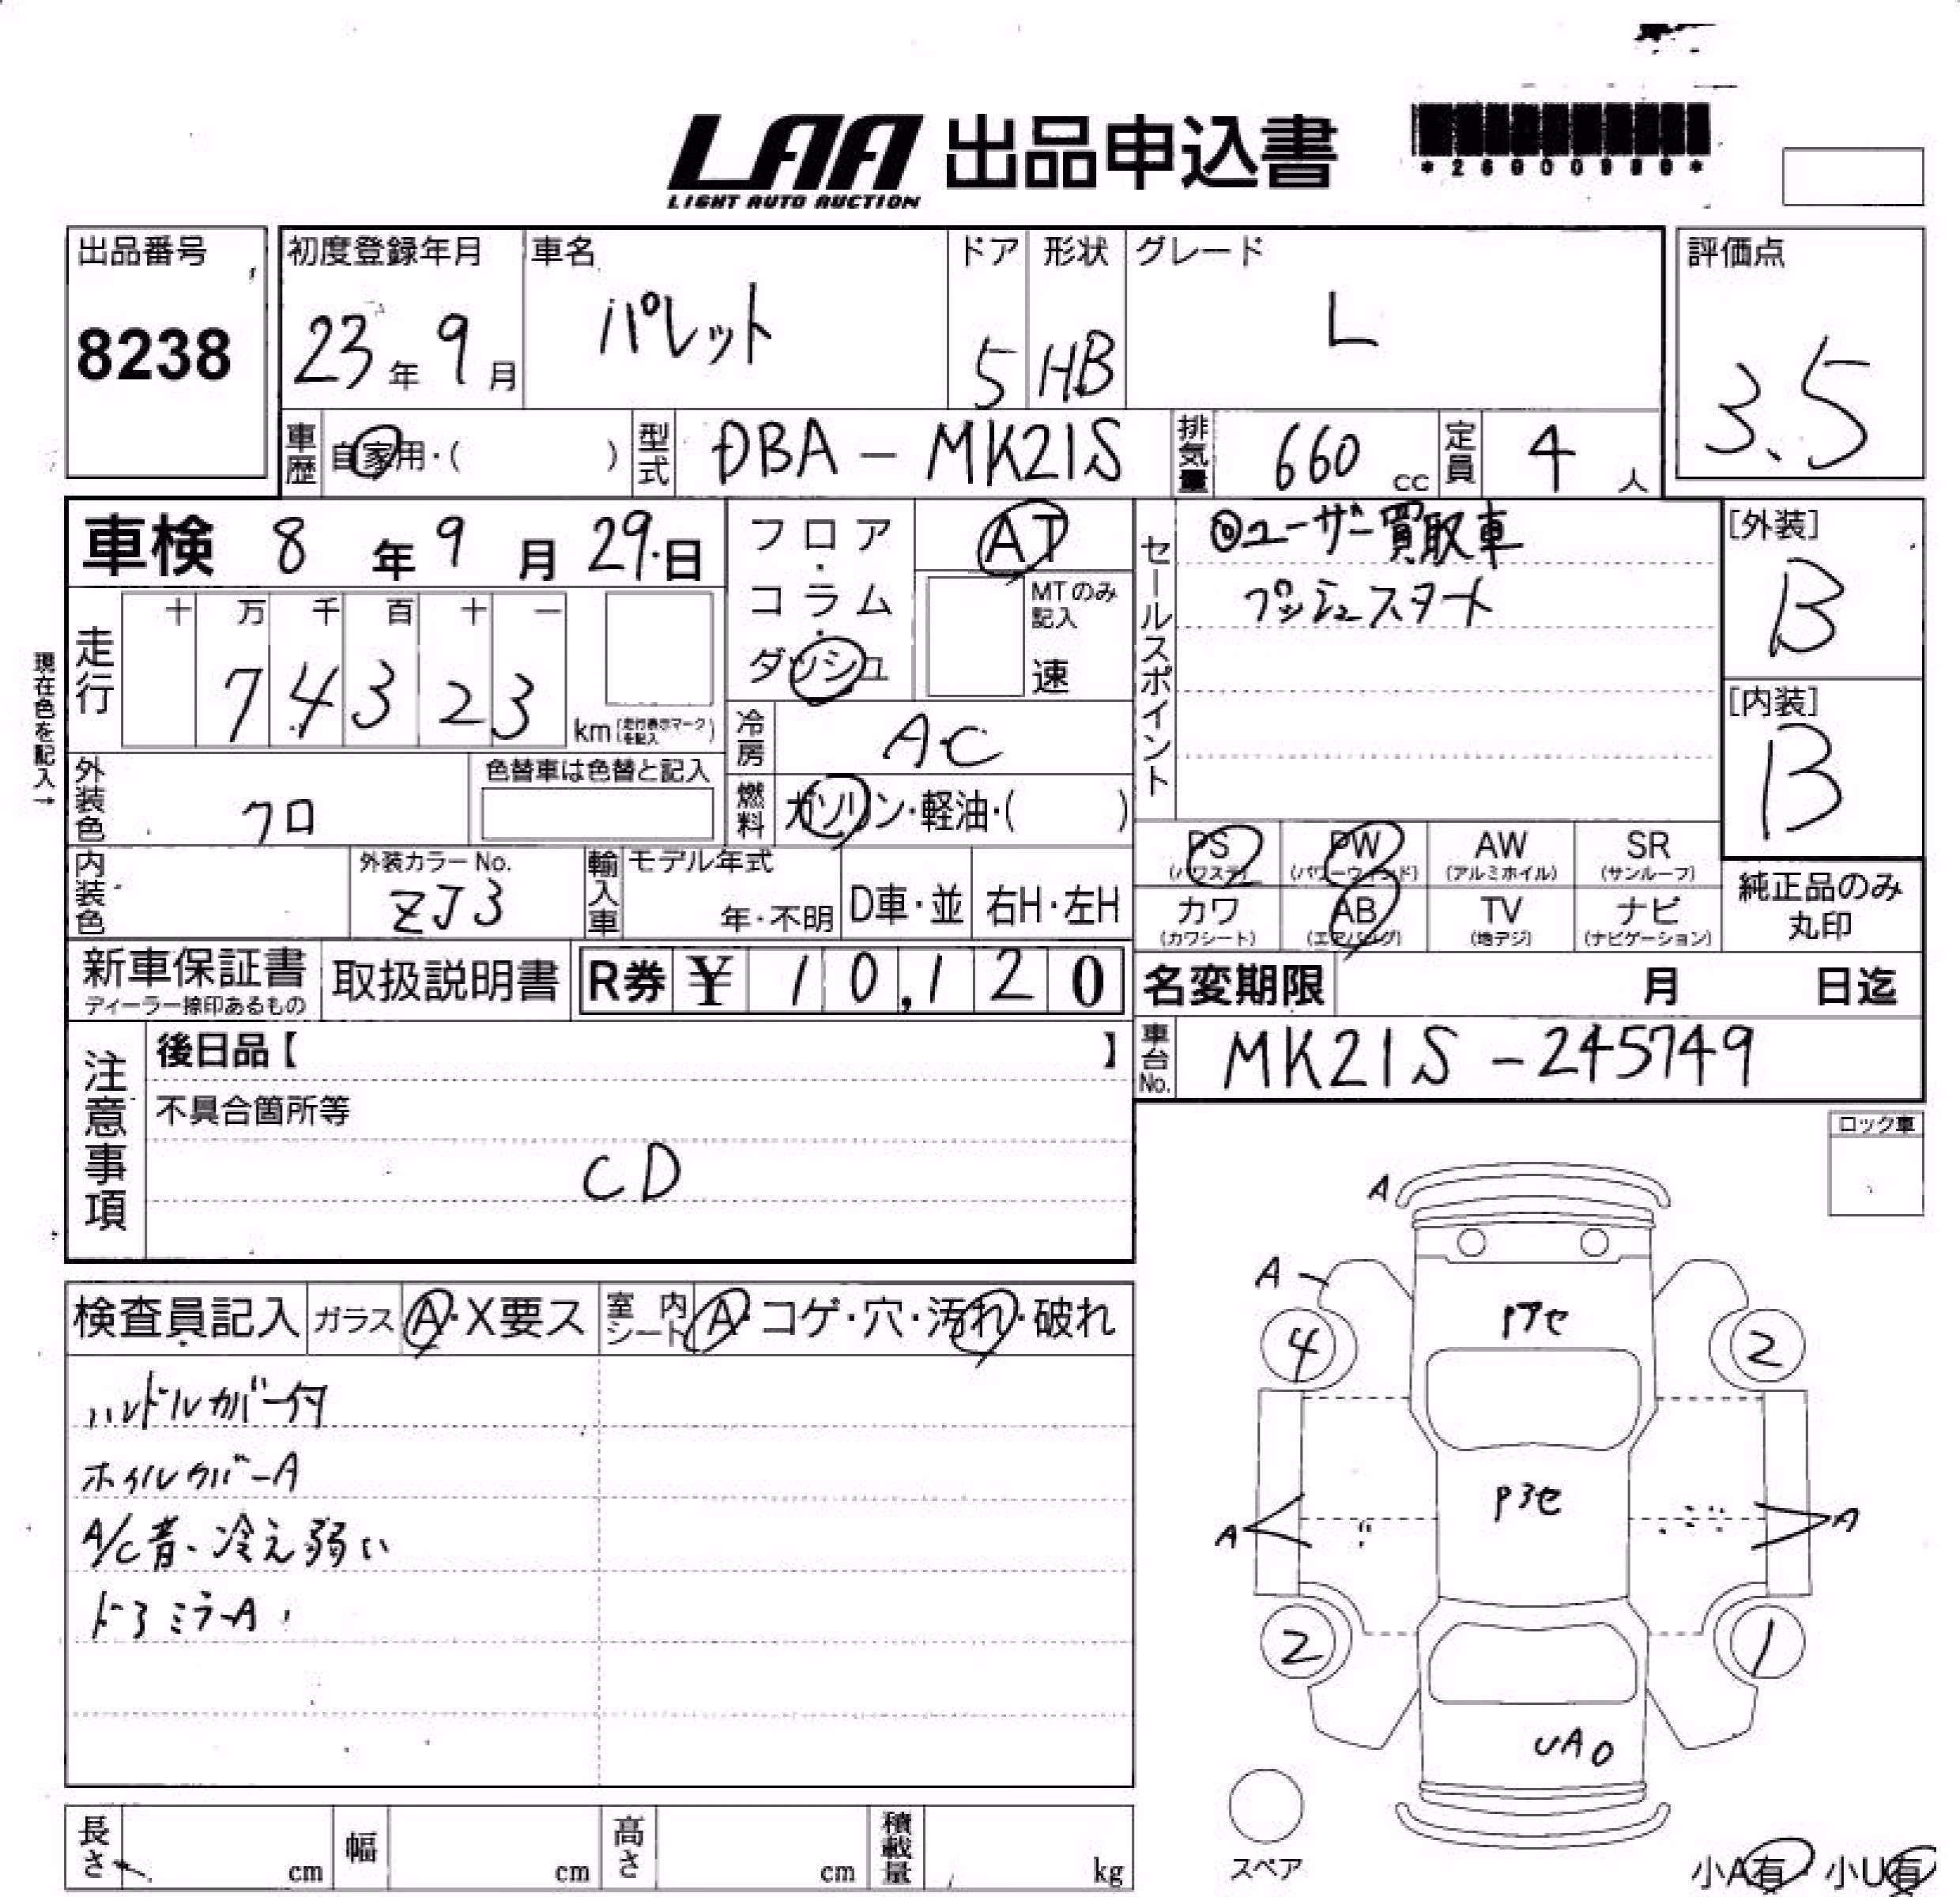 LAA 出品申込書
LIGHT AUTO AUCTION
出品番号
8238
初度登録年月
23年9月
車名
パレット
ドア
5
形状
HB
グレード
L
評価点
3.5
車歴 自家用・( )
型式 DBA-MK21S
排気量 660 cc
定員 4 人
車検 8年9月29日
フロア・コラム・ダッシュ
AT
MTのみ記入
速
セールスポイント
◎ユーザー買取車
プッシュスタート
[外装]
B
[内装]
B
現在色を記入→
走行
十 万 千 百 十 一
7 4 3 2 3
km (走行表示マークを記入)
冷房 AC
外装色 クロ
色替車は色替と記入
燃料 ガソリン・軽油・( )
PS (パワステ)
PW (パワーウィンド)
AW (アルミホイル)
SR (サンルーフ)
カワ (カワシート)
AB (エアバッグ)
TV (地デジ)
ナビ (ナビゲーション)
純正品のみ丸印
内装色
外装カラーNo.
ZJ3
輸入車
モデル年式
年・不明
D車・並
右H・左H
新車保証書
ディーラー捺印あるもの
取扱説明書
R券 ¥ 10,120
名変期限 月 日迄
車台No. MK21S-245749
注意事項
後日品【 】
不具合箇所等
CD
ロック車
検査員記入
ガラス A・X要ス
室内シート A・コゲ・穴・汚れ・破れ
ハンドルカバー付
ホイルカバーA
A/C音、冷え弱い
ドアミラーA
A
A
Pアセ
4
2
Pアセ
A
A
2
1
UA0
スペア
小A有・小U有
長さ cm
幅 cm
高さ cm
積載量 kg